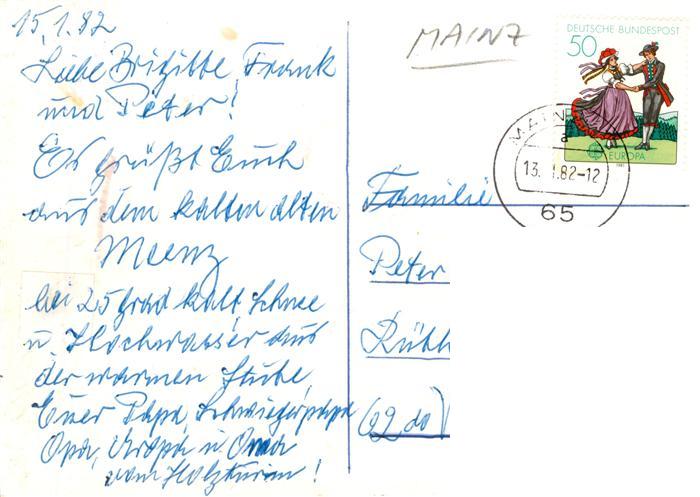 15.1.82
Liebe Brigitte, Frank
und Peter!
Es grüßt Euch
aus dem kalten alten
Maenz
bei 25 Grad kalt, Schnee
u. Hochwasser aus
der warmen Stube
Euer Papa, Schwiegerpapa
Opa, Uropa u. Oma
vom Holzturm!
MAINZ
DEUTSCHE BUNDESPOST
50
EUROPA
1981
MAINZ
a
13. 1.82-12
65
Familie
Peter